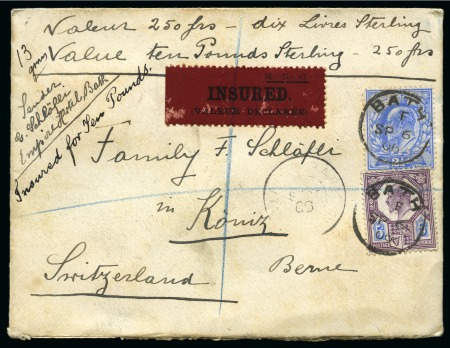 Valeur 250 frs - dix Livres Sterling
Value ten Pounds Sterling - 250 frs
13 grms
Sender
E. Schläfli
Empire Hotel Bath
Insured for Ten Pounds.
INSURED.
(VALEUR DECLARÉE)
BATH
F
SP 6
Family F. Schläfli
in Köniz
Berne
Switzerland
BATH